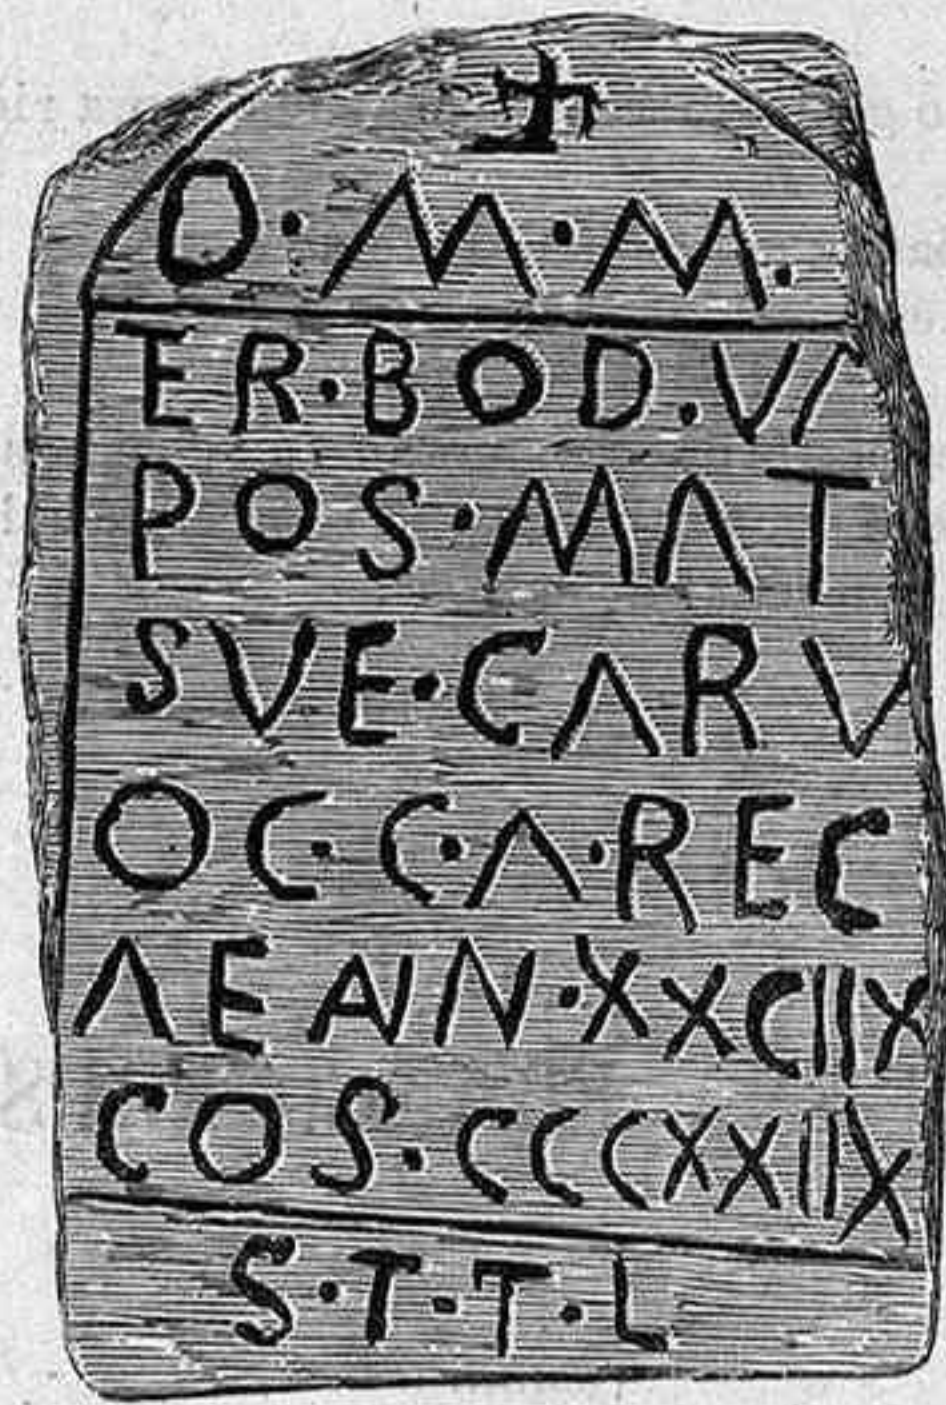 D·M·M·
ER·BOD·VI
POS·MAT
SVE·CARV
OC·C·A·REC
AE ANN·XXCIIX
COS·CCCXXIIX
S·T·T·L